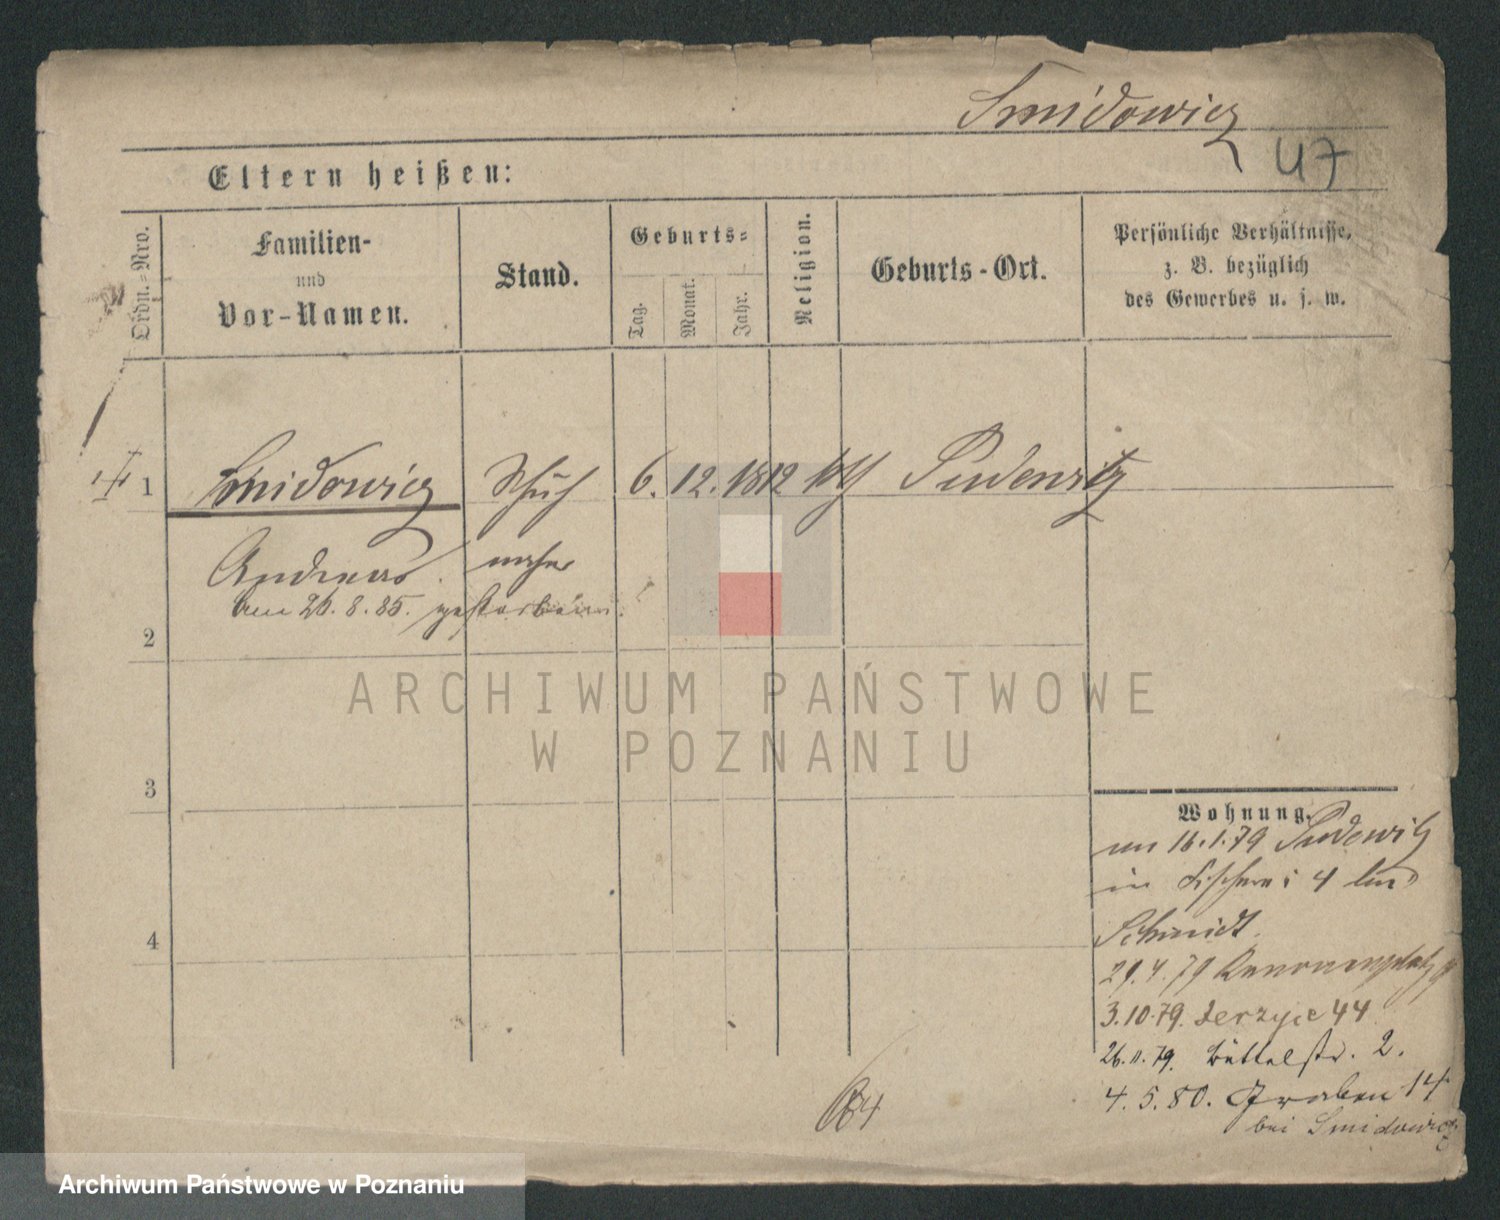 Smidowicz
47
Eltern heißen:
Ordn.=Nro.
Familien-
und
Vor-Namen.
Stand.
Geburts=
Tag.
Monat.
Jahr.
Religion.
Geburts-Ort.
Persönliche Verhältnisse,
z. B. bezüglich
des Gewerbes u. s. w.
1 Smidowicz Schuh 6. 12. 1812 kth Pudewitz
Andreas macher
am 26.8.85. gestorben.
2
3
4
Wohnung.
16.1.79 Pudewitz
in Fischerei 4 bei
Schmidt.
29.4.79 Kanonenplatz 9
3.10.79. Jerzyce 44
26.11.79. Büttelstr. 2.
4.5.80. Graben 14
bei Smidowicz
84
ARCHIWUM PAŃSTWOWE
W POZNANIU
Archiwum Państwowe w Poznaniu